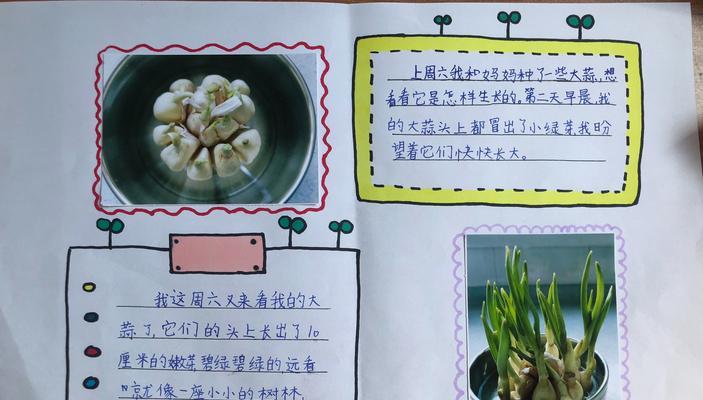 上周六我和妈妈种了一些大蒜,想
看看它是怎样生长的。第二天早晨,我
的大蒜头上都冒出了小绿芽,我盼
望着它们快快长大。
我这周六又来看我的大
蒜了,它们的头上长出了10
厘米的嫩芽碧绿碧绿的远看
就像一座小小的树林,